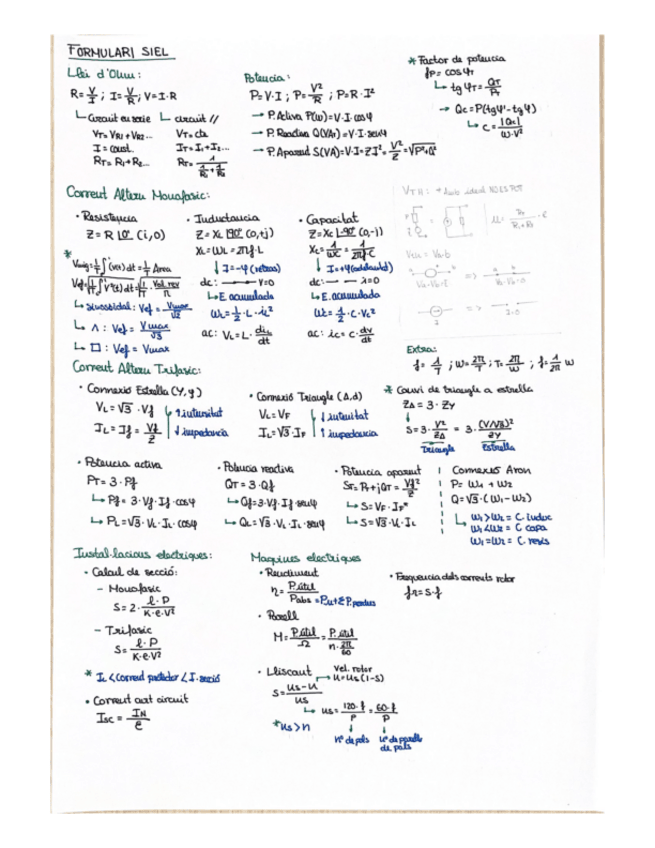 FORMULARI SIEL
Llei d'Ohm:
R = V/I ; I = V/R ; V = I·R
Circuit en serie
V_T = V_R1 + V_R2...
I = const.
R_T = R1 + R2...
circuit //
V_T = cte
I_T = I1 + I2...
R_T = 1/(1/R1 + 1/R2)
Potencia:
P = V·I ; P = V²/R ; P = R·I²
→ P. Activa P(W) = V·I·cosφ
→ P. Reactiva Q(VAr) = V·I·senφ
→ P. Aparent S(VA) = V·I = Z I² = V²/Z = √P²+Q²
* Factor de potencia
fp = cosφ_T
tgφ_T = Q_T/P_T
→ Qc = P(tgφ' - tgφ)
C = |Qc|/(ω·V²)
Corrent Altern Monofasic:
• Resistencia
Z = R |0° (i,0)
• Inductancia
Z = X_L |90° (0,+j)
X_L = ωL = 2πf·L
I = -φ (retras)
dc: V=0
E. acumulada
W_L = 1/2 · L · i_L²
ac: V_L = L · di_L/dt
• Capacitat
Z = Xc |-90° (0,-j)
Xc = 1/ωC = 1/2πf·C
I = +φ (adelantad)
dc: i=0
E. acumulada
Wc = 1/2 · C · Vc²
ac: ic = C · dv/dt
*
Vmig = 1/T ∫ v(t) dt = 1/T Area
Sinusoidal: Vef = Vmax/√2
∧ : Vef = Vmax/√3
□ : Vef = Vmax
Extra:
f = 1/T ; ω = 2π/T ; T = 2π/ω ; f = 1/2π ω
Corrent Altern Trifasic:
• Connexió Estrella (Y, y)
V_L = √3 · Vf
I_L = If = Vf/Z
↑ intensitat
↓ impedancia
• Connexió Triangle (Δ, d)
V_L = V_F
I_L = √3 · I_F
↓ intensitat
↑ impedancia
* Canvi de triangle a estrella
ZΔ = 3 · Zy
S = 3 · V²/ZΔ = 3 · (V/√3)²/Zy
Triangle Estrella
• Potencia activa
P_T = 3 · Pf
Pf = 3 · Vf · If · cosφ
P_L = √3 · V_L · I_L · cosφ
• Potencia reactiva
Q_T = 3 · Qf
Qf = 3·Vf·If·senφ
Q_L = √3 · V_L · I_L · senφ
• Potencia aparent
S_T = P_T + jQ_T = Vf²/Z
S = V_F · I_F*
S = √3 · V_L · I_L
Connexió Aron
P = W1 + W2
Q = √3 · (W1 - W2)
W1 > W2 = C. induc
W1 < W2 = C. capa
W1 = W2 = C. resis
Instal·lacions electriques:
• Calcul de secció:
– Monofasic
S = 2 · l·P/(K·e·V²)
– Trifasic
S = l·P/(K·e·V²)
* I_L < Corrent protector < I. secció
• Corrent curt circuit
Isc = I_N/ε
Maquines electriques
• Rendiment
η = P.útil/Pabs = Pu+ΣP.perdues
• Parell
M = P.útil/Ω = P.útil/(n · 2π/60)
• Lliscament
S = (ns - n)/ns
Vel. rotor
n = ns (1-S)
ns = 120·f/P = 60·f/P
*ns > n
nº de pols
nº de parells de pols
• Frequencia dels corrents rotor
fr = s·f